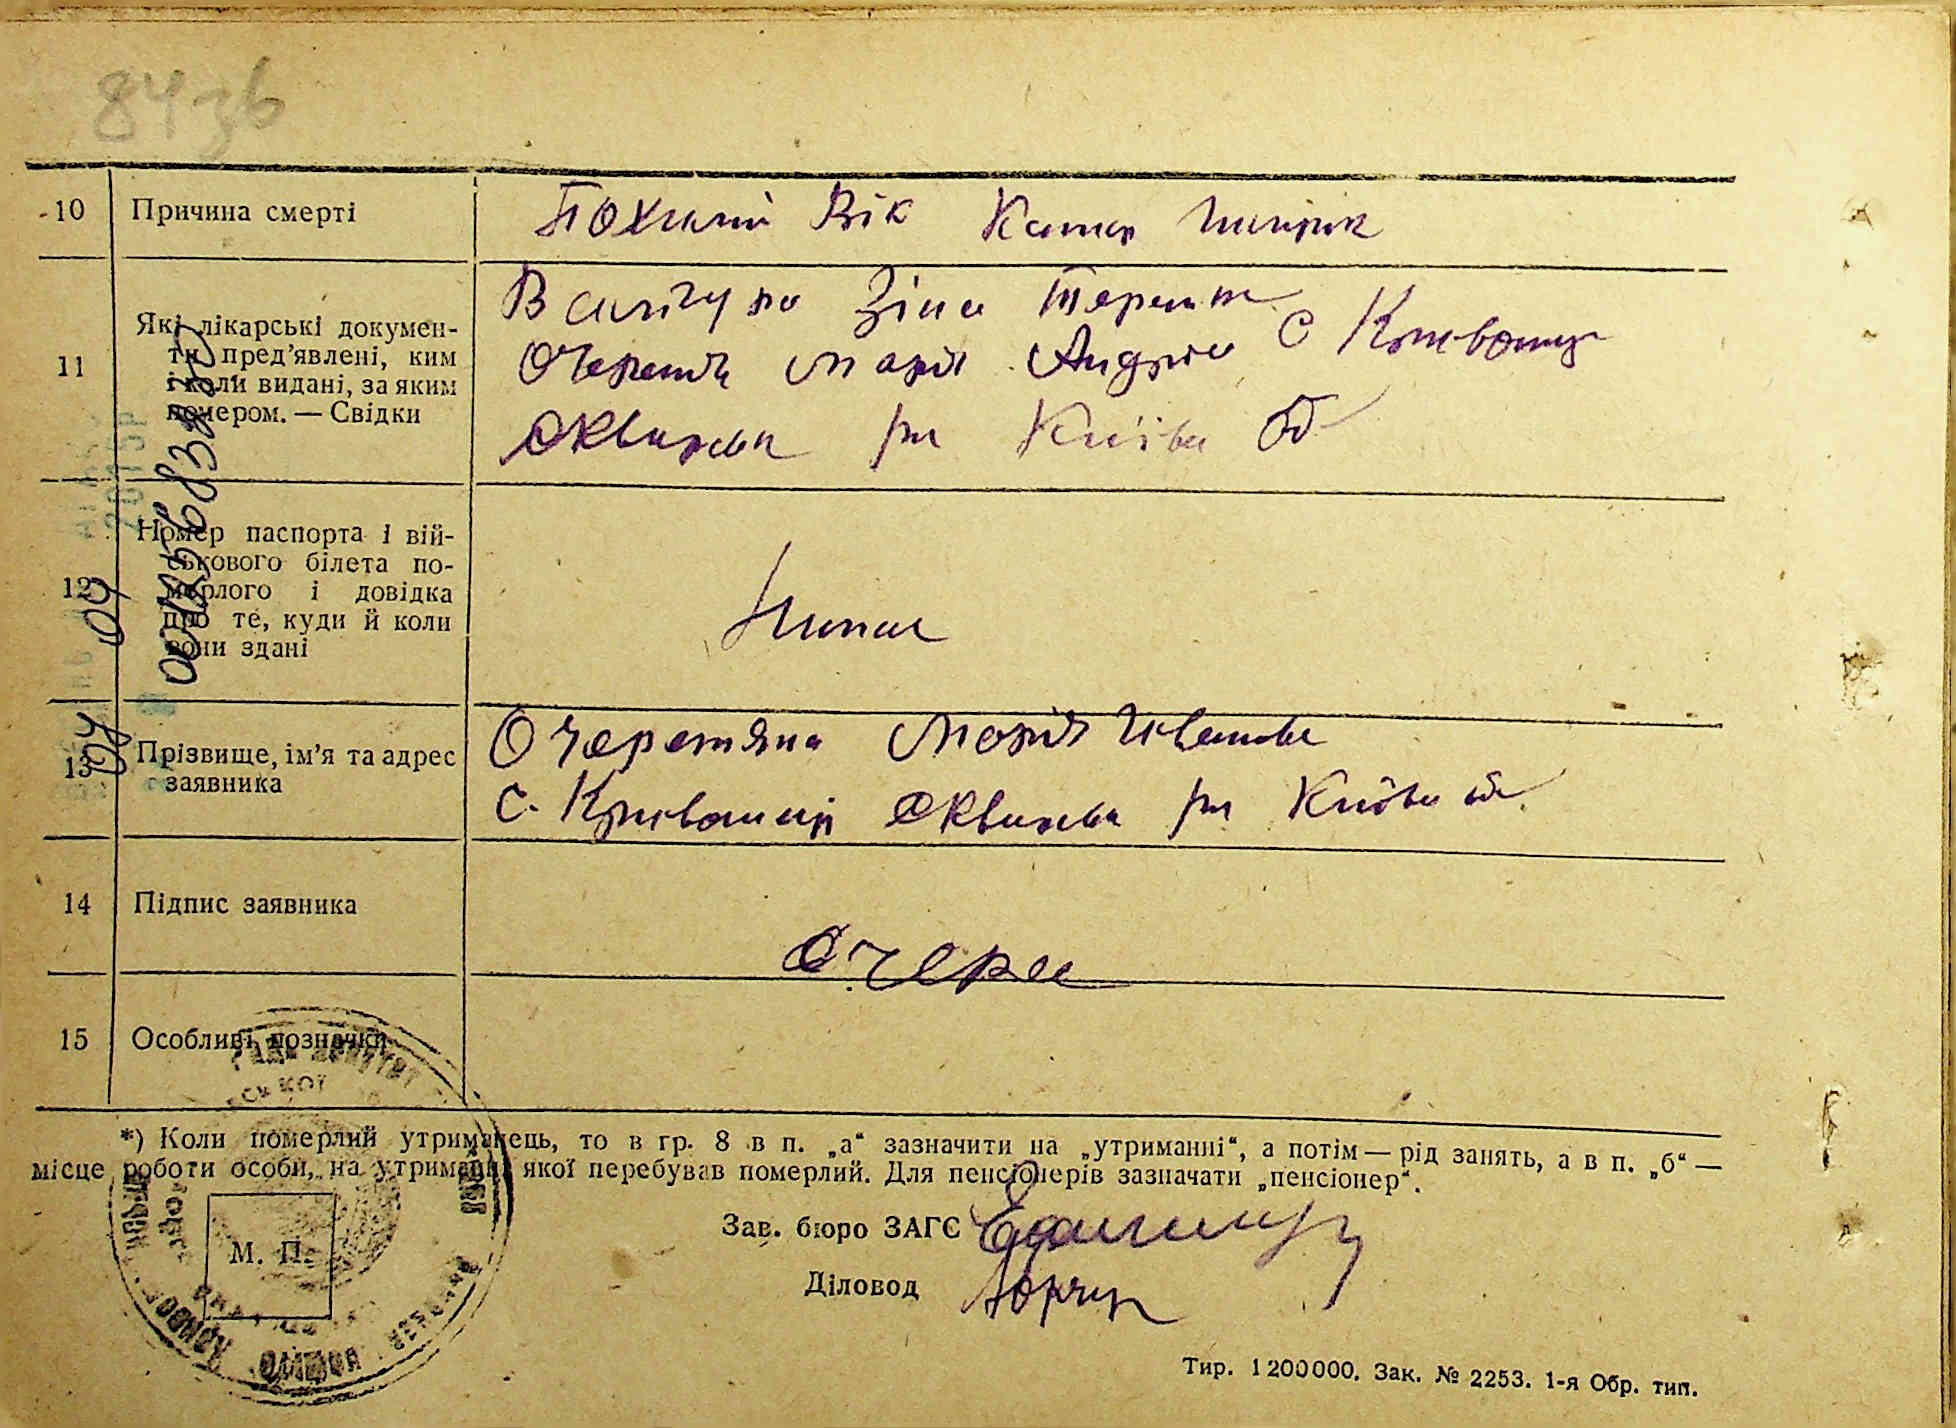 84зв
10 Причина смерті Похилий Вік Катар
11 Які лікарські докумен-
ти пред’явлені, ким
і коли видані, за яким
номером. — Свідки
Зіна
Марія с Кривошиї
Сквирськ рн Київ об
00125683220
12 Номер паспорта і вій-
ськового білета по-
мерлого і довідка
про те, куди й коли
вони здані
Нимає
04 04
13 Прізвище, ім’я та адрес
заявника
Очеретяна Марія Іванівна
с. Кривошиї Сквирськ рн Київ об
14 Підпис заявника
Очере
15 Особливі позначки
*) Коли померлий утриманець, то в гр. 8 в п. „а“ зазначити на „утриманні“, а потім — рід занять, а в п. „б“ —
місце роботи особи, на утриманні якої перебував померлий. Для пенсіонерів зазначати „пенсіонер“.
Зав. бюро ЗАГС
М. П.
Діловод
Тир. 1 200 000. Зак. № 2253. 1-я Обр. тип.